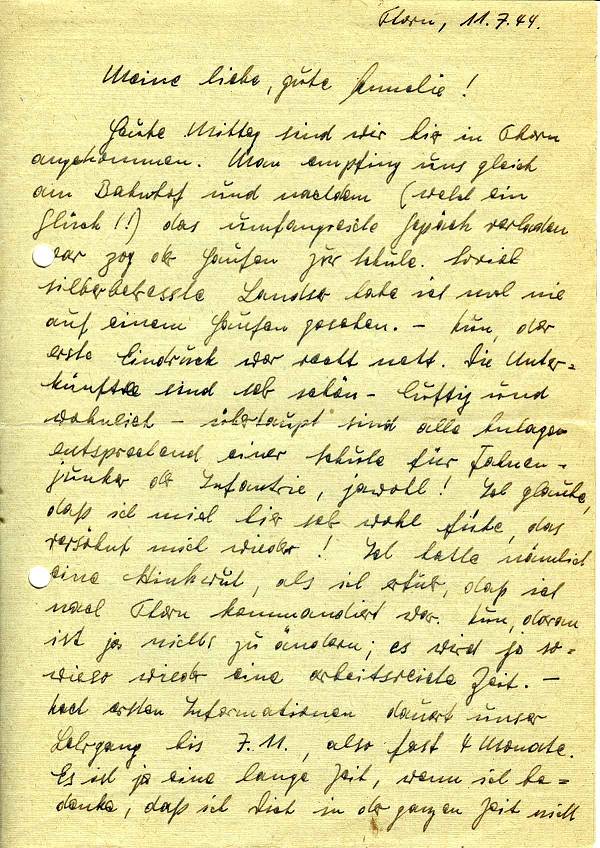 Thorn, 11.7.44.
Meine liebe, gute Annelie!
Heute Mittag sind wir hier in Thorn
angekommen. Man empfing uns gleich
am Bahnhof und nachdem (welch ein
Glück!!) das umfangreiche Gepäck verladen
war zog der Haufen zur Schule. Soviel
silberbetresste Landser habe ich noch nie
auf einem Haufen gesehen. – Nun, der
erste Eindruck war recht nett. Die Unter=
künfte sind sehr schön – luftig und
wohnlich – überhaupt sind alle Anlagen
entsprechend einer Schule für Fahnen-
junker der Infantrie, jawoll! Ich glaube,
daß ich mich hier sehr wohl fühle, das
versöhnt mich wieder! Ich hatte nämlich
eine Stinkwut, als ich erfuhr, daß ich
nach Thorn kommandiert war. Nun, daran
ist ja nichts zu ändern; es wird ja so=
wieso wieder eine arbeitsreiche Zeit. –
Nach ersten Informationen dauert unser
Lehrgang bis 7.11., also fast 4 Monate.
Es ist ja eine lange Zeit, wenn ich be=
denke, daß ich Dich in der ganzen Zeit nicht